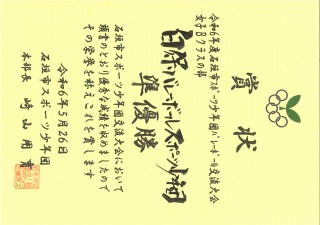 賞状
令和6年度石垣市スポーツ少年団バレーボール交流大会
女子Bクラスの部
準優勝
白保バレーボールスポーツ少年団
石垣市スポーツ少年団交流大会において
頭書のとおり優秀な成績を収めましたので
その栄誉を称えこれを賞します
令和6年5月26日
石垣市スポーツ少年団
本部長 崎山用